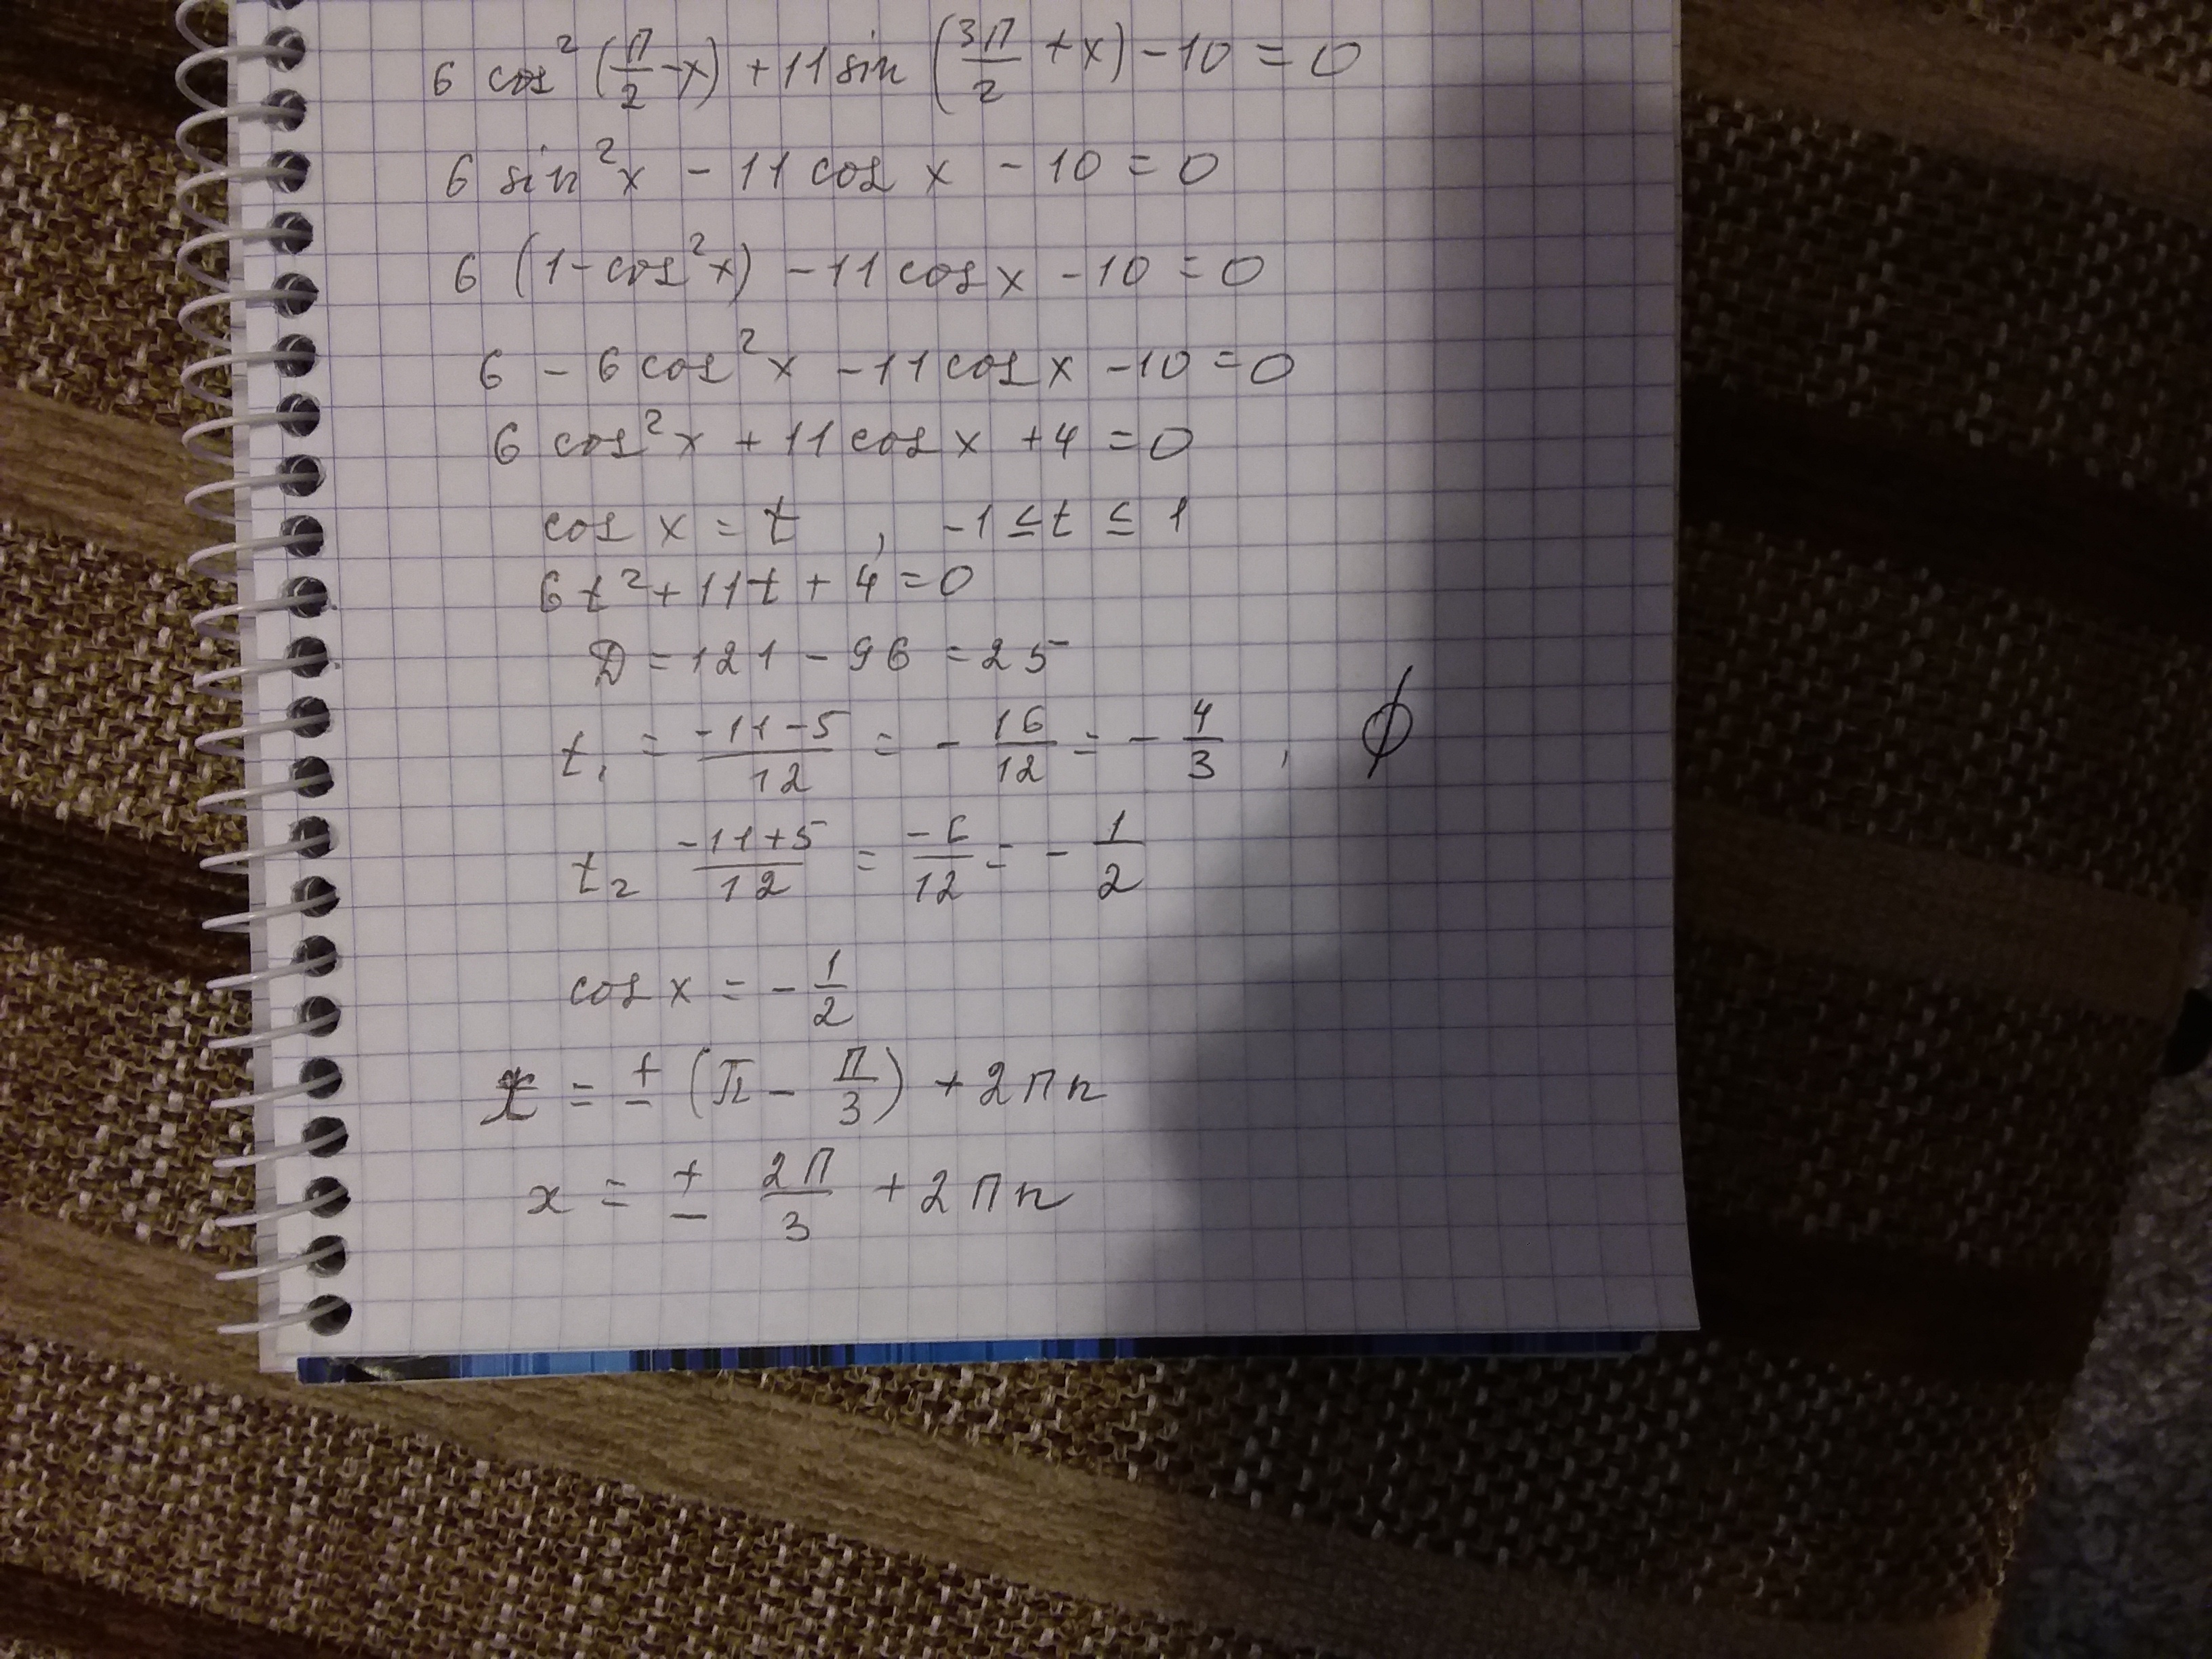 6 cos² (π/2 - x) + 11 sin (3π/2 + x) - 10 = 0
6 sin² x - 11 cos x - 10 = 0
6 (1 - cos² x) - 11 cos x - 10 = 0
6 - 6 cos² x - 11 cos x - 10 = 0
6 cos² x + 11 cos x + 4 = 0
cos x = t , -1 ≤ t ≤ 1
6t² + 11t + 4 = 0
D = 121 - 96 = 25
t₁ = (-11-5)/12 = - 16/12 = - 4/3 , ∅
t₂ (-11+5)/12 = -6/12 = - 1/2
cos x = - 1/2
x = ± (π - π/3) + 2πn
x = ± 2π/3 + 2πn